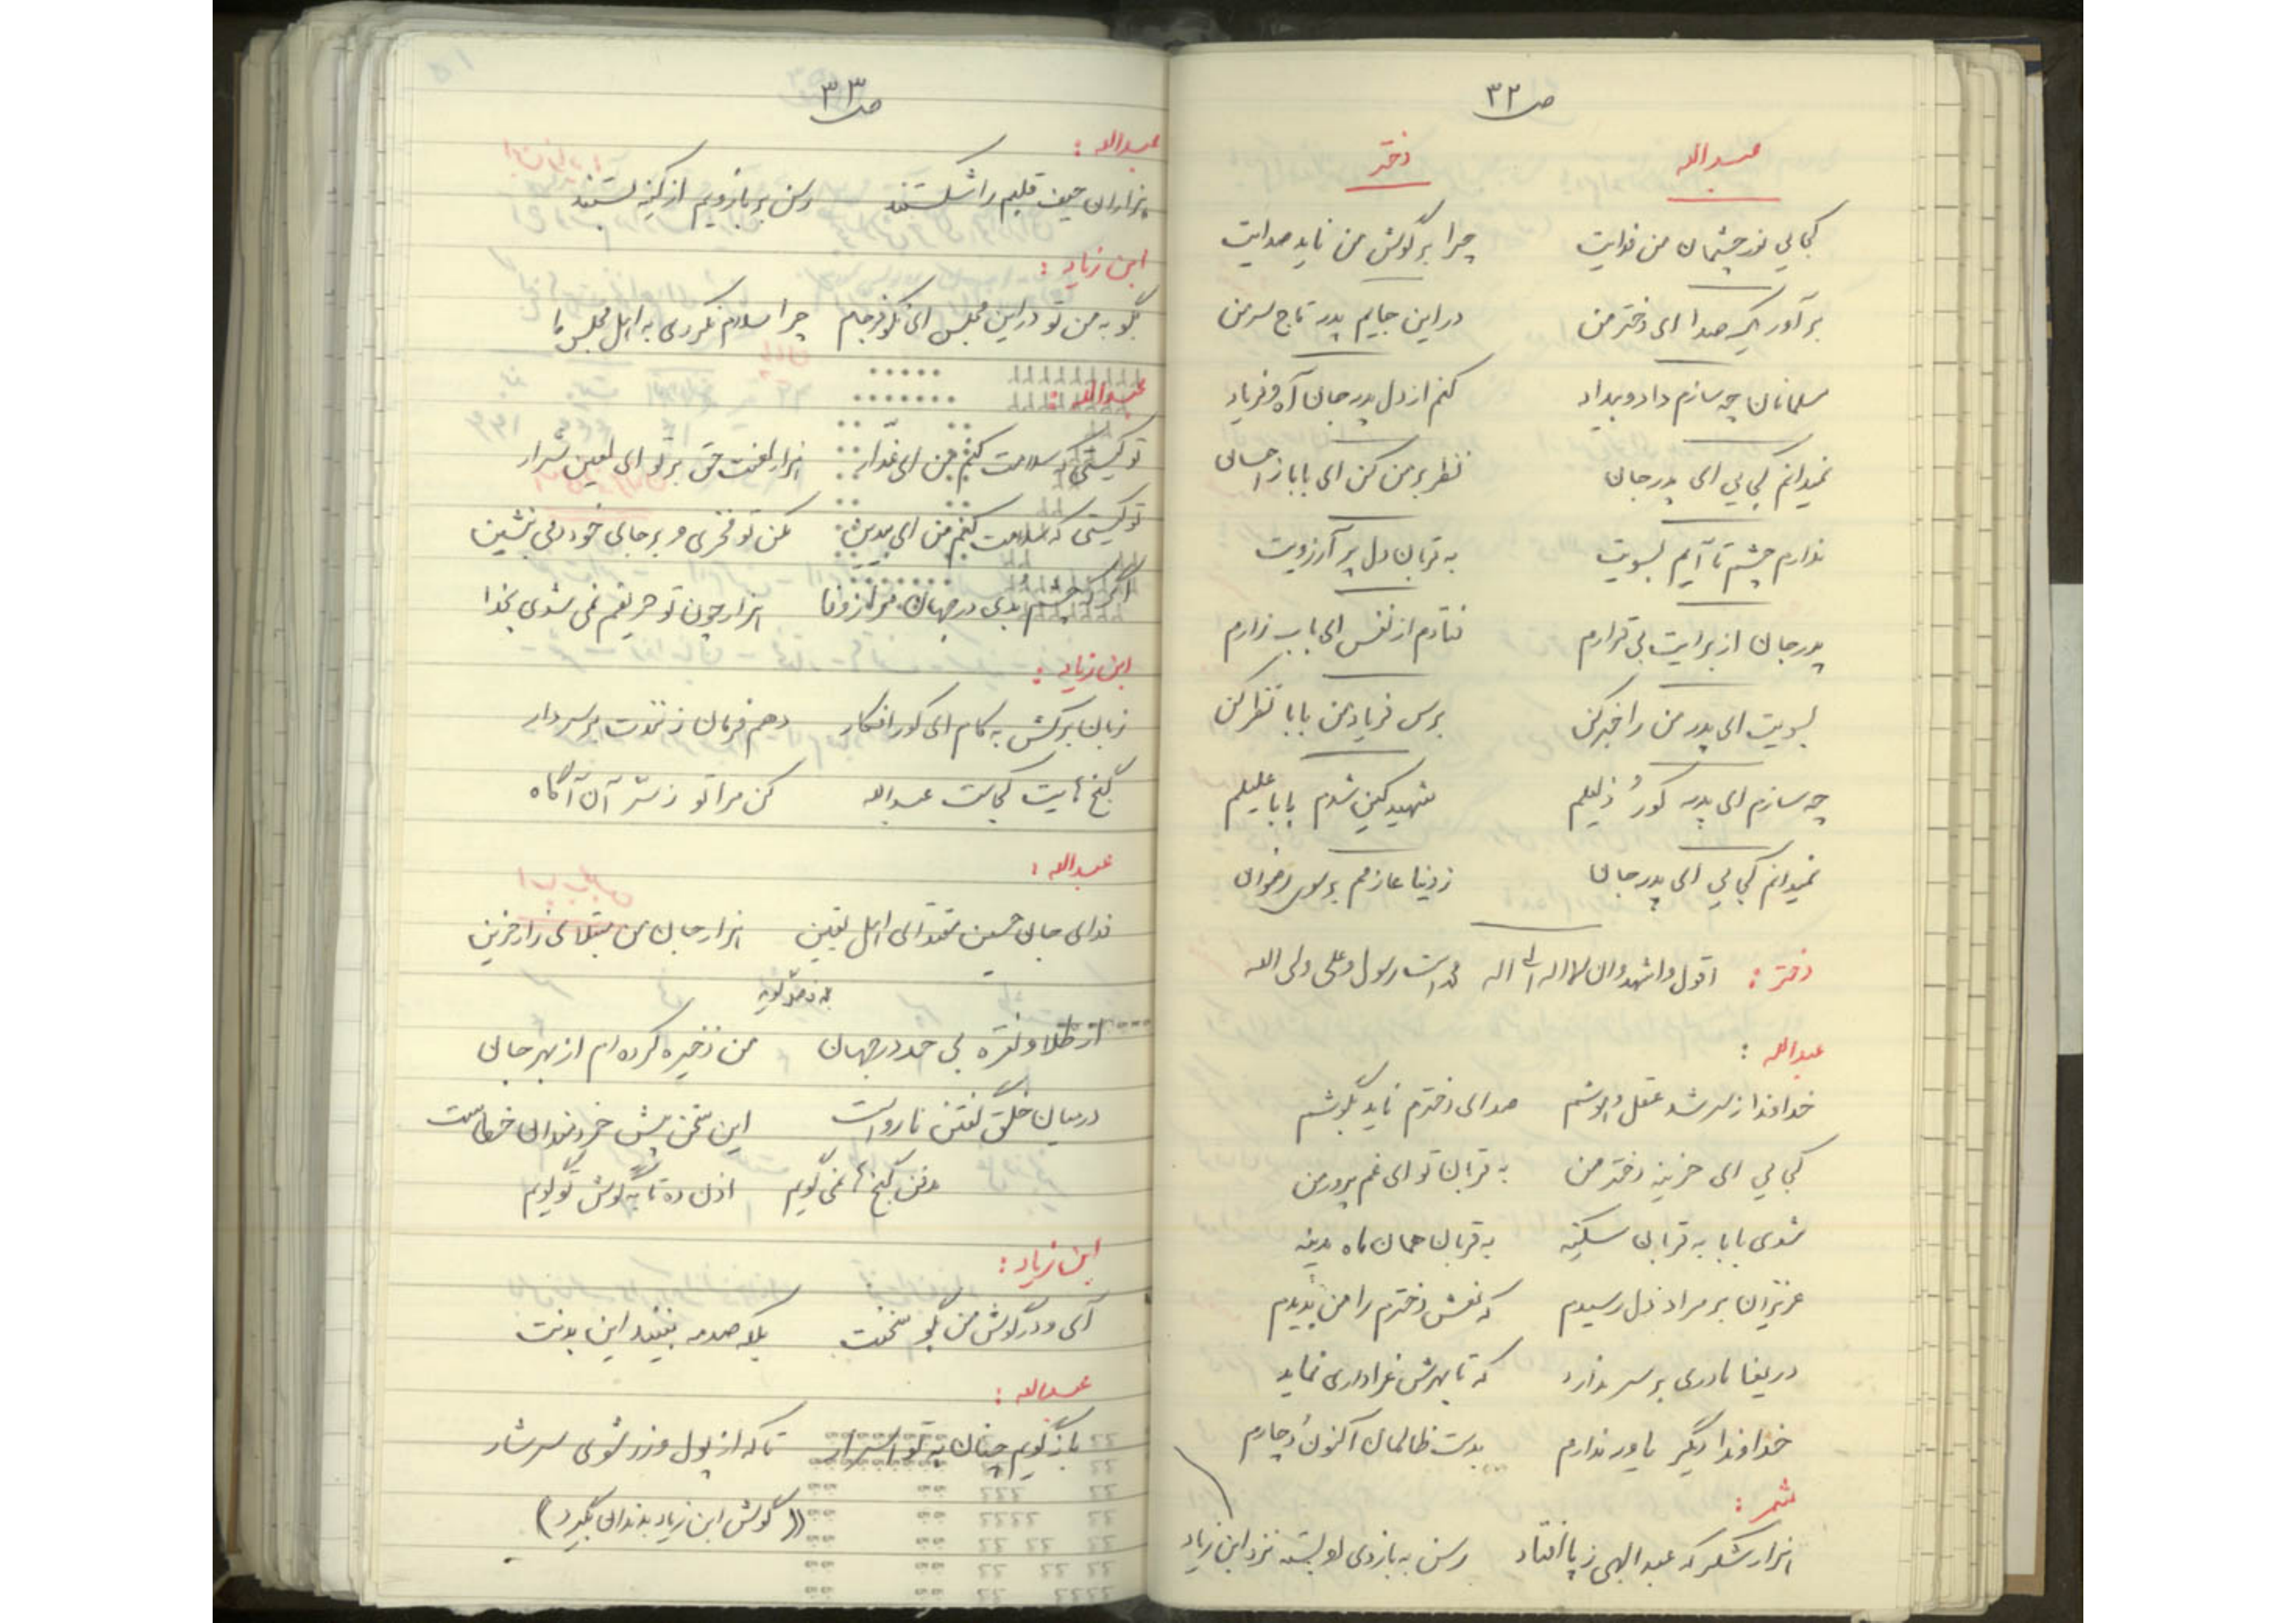 ص ۳۲
عبداله دختر
کجایی نور چشمان من فدایت چرا بر گوش من ناید صدایت
برآور یک صدا ای دختر من در این جایم پدر تاج سر من
مسلمانان چه سازم داد و بیداد کنم از دل پدر جان آه و فریاد
نمیدانم کجایی ای پدر جان نظر بر من کن ای بابا ز احسان
ندارم چشم تا آیم بسویت به قربان دل پر آرزویت
پدر جان از برایت بی قرارم فتادم از نفس ای باب زارم
بسویت ای پدر من را خبر کن برس فریاد من بابا نظر کن
چه سازم ای پدر کور و ذلیلم شهید کین شدم بابا علیلم
نمیدانم کجایی ای پدر جان ز دنیا عازمم بر سوی رضوان
دختر : اقول و اشهد و ان لا اله الا اله محمد است رسول و علی ولی اله
عبداله :
خداوندا ز سر شد عقل و هوشم صدای دخترم ناید بگوشم
کجایی ای حزینه دختر من به قربان تو ای غم پرور من
شوی بابا به قربان سکینه به قربان همان ماه مدینه
عزیزان بر مراد دل رسیدم که نعش دخترم را من بدیدم
دریغا مادری بر سر ندارد که تا بهرش عزاداری نماید
خداوندا دیگر یاور ندارم بدست ظالمان اکنون دچارم
شمر :
هزار شکر که عبدالهی ز پا افتاد رسن به بازوی او بسته نزد ابن زیاد
ص ۳۳
عبداله :
هزاران حیف قلبم را شکستند رسن بر بازویم از کینه بستند
ابن زیاد :
بگو به من تو در این مجلس ای نکو فرجام چرا سلام نکردی به اهل مجلس ما
عبداله :
تو کیستی که سلامت کنم من ای غدار هزار لعنت حق بر تو ای لعین شرار
تو کیستی که سلامت کنم من ای بیدین مکن تو فخری و بر جای خود دمی بنشین
اگر که چشم بدی در جهان مرا ز وفا هزار چون تو حریفم نمی شوی بخدا
ابن زیاد :
زبان برکش به کام ای کور افکار دهم فرمان زنندت بر سر دار
گنج هایت کجاست عبداله کن مرا تو ز سر آن آگاه
عبداله :
فدای جان حسین مقتدای اهل یقین هزار جان من مبتلای زار حزین
از طلا و نقره بی حد در جهان من ذخیره کرده ام از بهر جان
در میان خلق گفتن نارواست این سخن پیش خردمندان خطاست
دفن گنج ها نمی گویم اذن ده تا به گوش تو گویم
ابن زیاد :
آی و در گوش من بگو سخنت بلا صدمه نبیند این بدنت
عبداله :
باز گویم چنان به تو اسرار تا که از پول و زر شوی سرشار
(( گوش ابن زیاد بدندان بگیرد ))